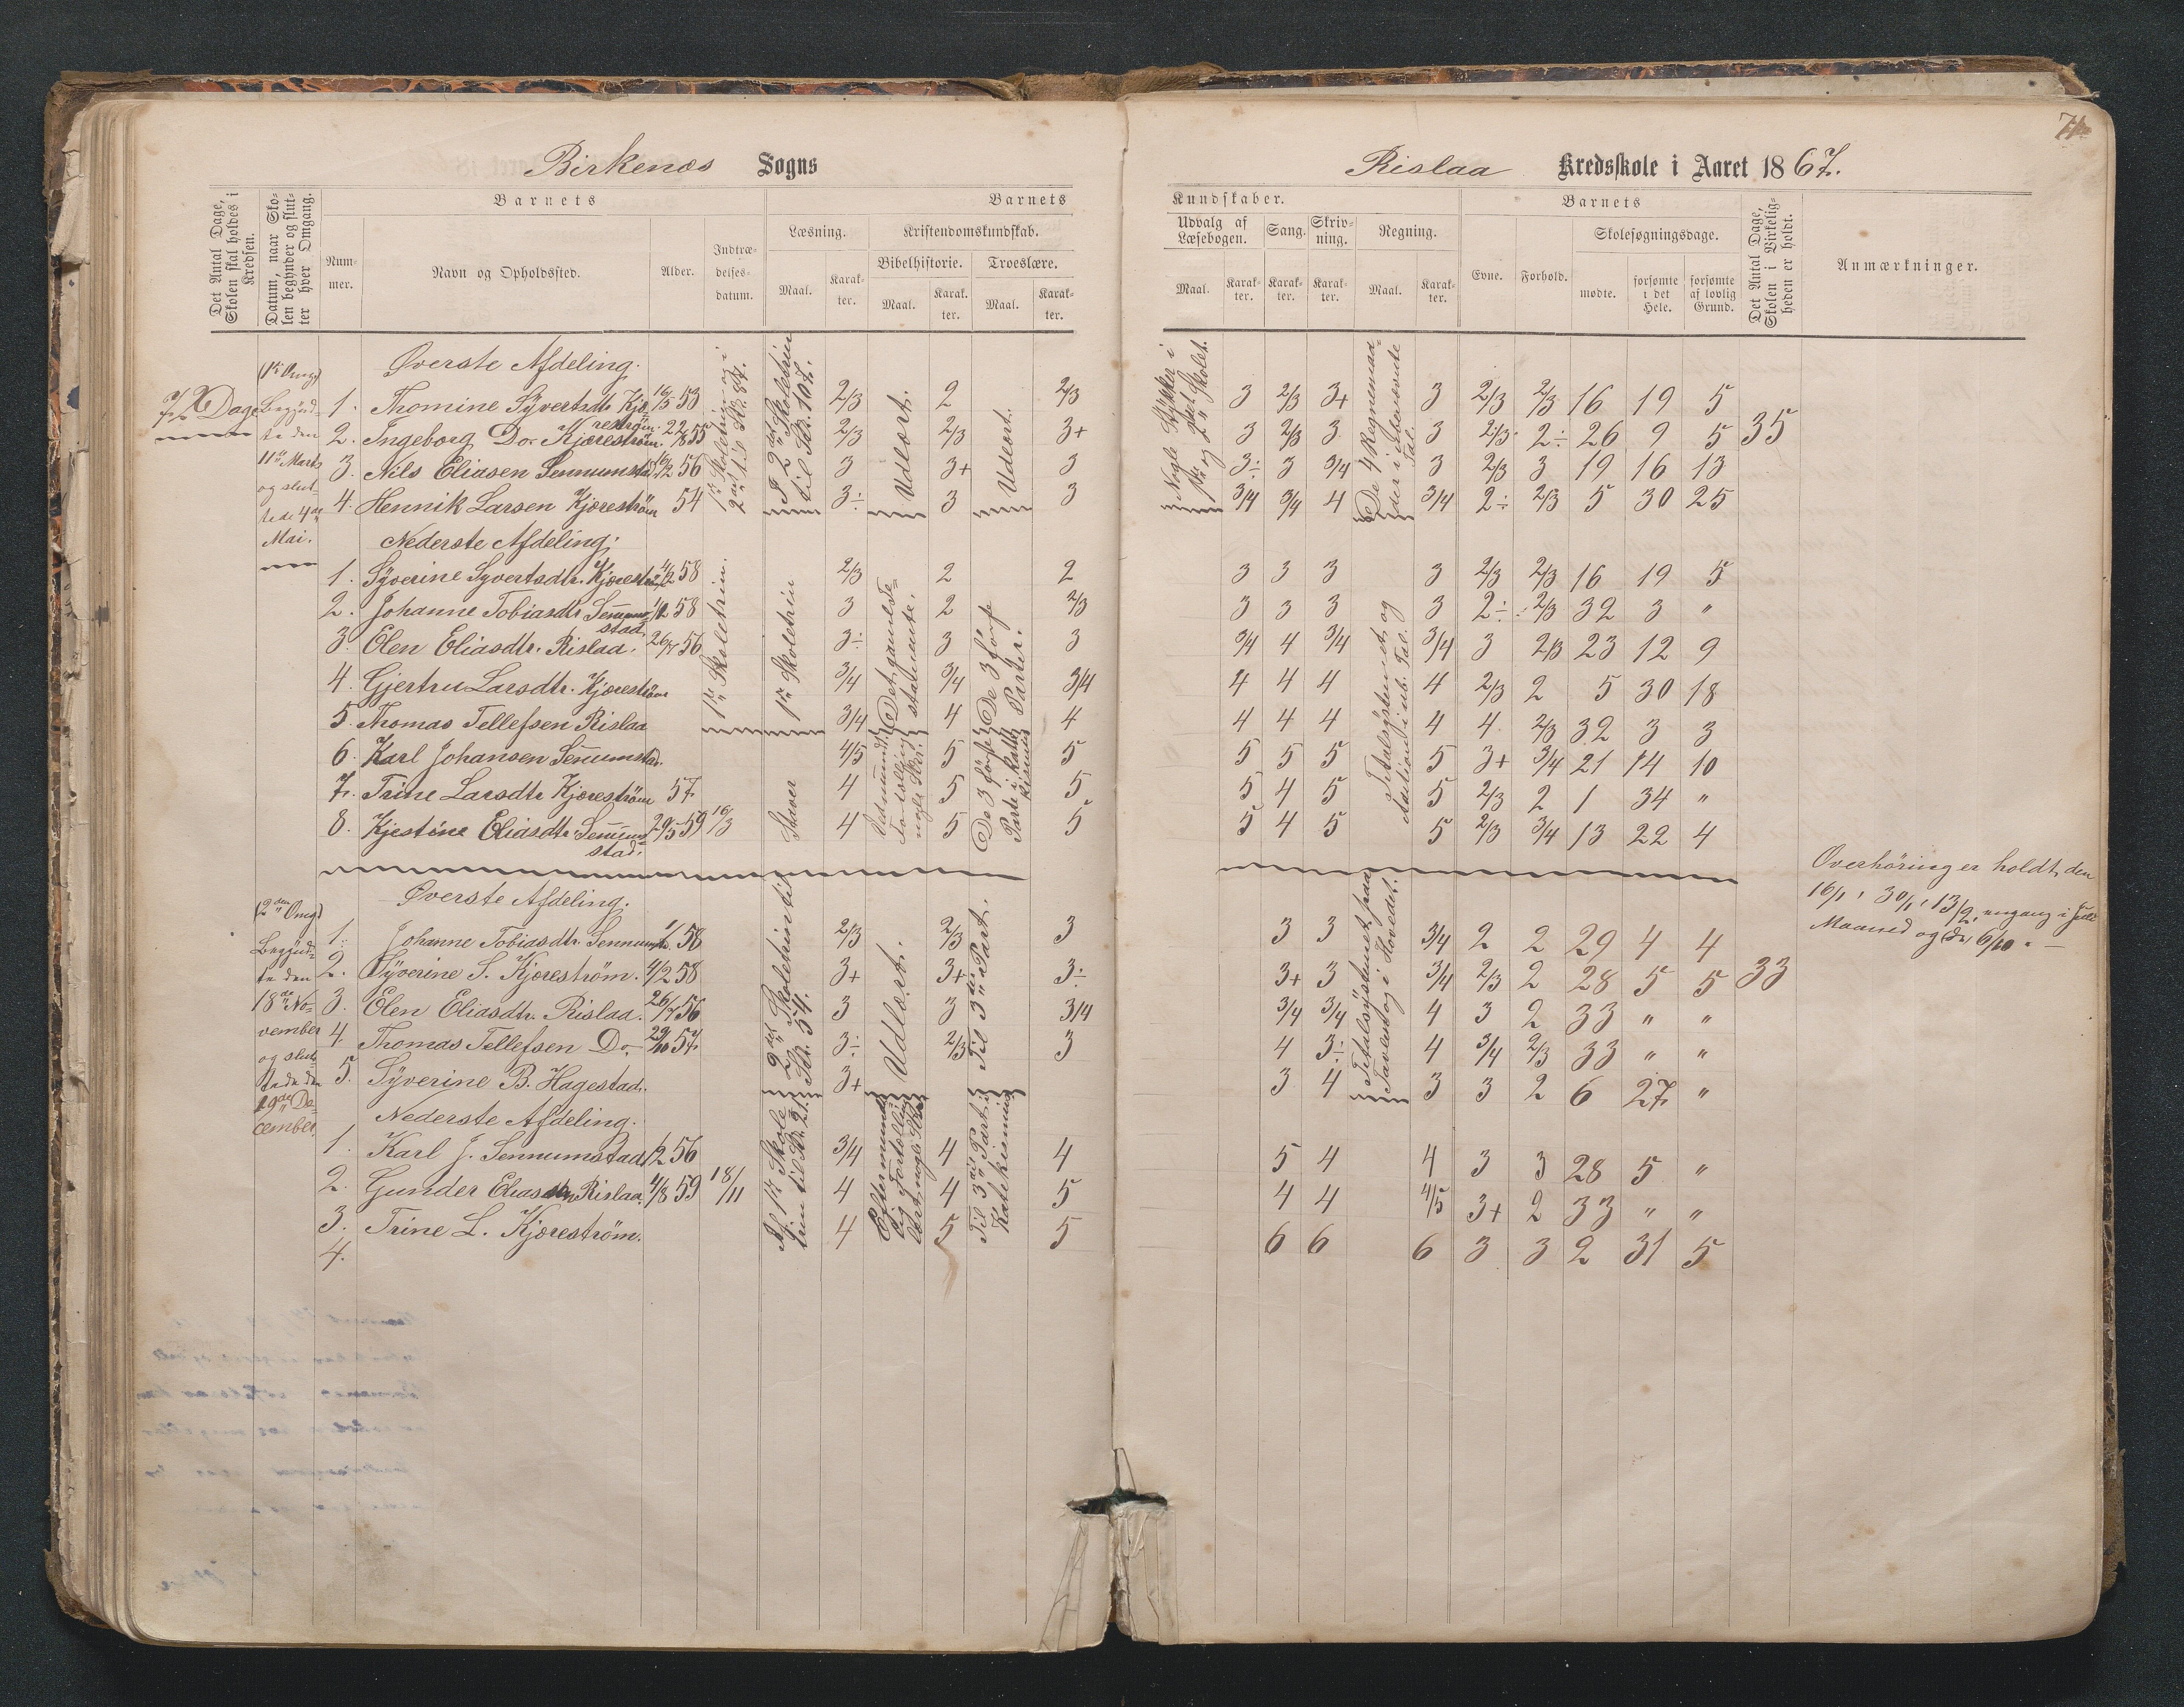 Birkenæs Sogns
Rislaa Kredsskole i Aaret 1867.
Det Antal Dage, Skolen skal holdes i Kredsen.
Datum, naar Skolen begynder og slutter hver Omgang.
Barnets
Nummer.
Navn og Opholdssted.
Alder.
Indtrædelsesdatum.
Barnets
Læsning.
Maal.
Karakter.
Kristendomskundskab.
Bibelhistorie.
Maal.
Karakter.
Troeslære.
Maal.
Karakter.
Kundskaber.
Udvalg af Læsebogen.
Maal.
Karakter.
Sang.
Karakter.
Skrivning.
Karakter.
Regning.
Maal.
Karakter.
Barnets
Evne.
Forhold.
Skolesøgningsdage.
mødte.
forsømte i det Hele.
forsømte af lovlig Grund.
Det Antal Dage, Skolen i Virkeligheden er holdt.
Anmærkninger.
72 Dage
(1ste Omg)
Begyndte den 11te Marts og sluttede 4de Mai.
Øverste Afdeling.
1. Thomine Syvertsdtr Kjærestrøm. 16/5 53 2/3 2 2/3 3 2/3 3+ 3 2/3 2/3 16 19 5
2. Ingeborg Do. Kjærestrøm. 22/8 55 2/3 2/3 3+ 3 2/3 3 3 2/3 2÷ 26 9 5 35
3. Nils Eliasen Sennumstad 56 3 3+ 3 3÷ 3 3/4 3 2/3 3 19 16 13
4. Hennik Larsen Kjærestrøm 54 3÷ 3 3 3/4 3/4 4 3/4 2÷ 2/3 5 30 25
I 2det Skoletrin til St. 107.
Udlært.
Udlært.
Nogle Stykker i 1ste og 2det Skolet.
De 4 Regnemaader i ubenævnte Tal.
Nederste Afdeling.
1. Syverine Syvertsdtr. Kjærestrøm 4/2 58 2/3 2 2 3 3 3 3 2/3 2/3 16 19 5
2. Johanne Tobiasdtr Sennumstad. 58 3 2 2/3 3 3 3 3 2÷ 2/3 32 3 "
3. Olen Eliasdtr. Rislaa. 26/7 56 3÷ 3 3 3/4 4 3/4 3/4 3 2/3 23 12 9
4. Gjertru Larsdtr. Kjærestrøm 3/4 3/4 3/4 4 4 4 4 2/3 2 5 30 18
5. Thomas Tellefsen Rislaa 3/4 4 4 4 4 4 4 4 2/3 32 3 3
6. Karl Johansen Sennumstad. 4/5 5 5 5 5 5 5 3+ 3/4 21 14 10
7. Trine Larsdtr Kjærestrøm 57 4 5 5 5 4 5 5 2/3 2 1 34 "
8. Kjestine Eliasdtr Sennumstad. 29/5 59 16/3 4 5 5 5 4 5 5 2/3 3/4 13 22 4
1ste Skoletrin.
1ste Skoletrin
Staver
Det gamle Testamente.
De 3 første Parter.
De 3 første Parter i
Titalsystemet og
(2den Omg)
Begyndte den 18de November og sluttede den 19de December.
Øverste Afdeling.
1. Johanne Tobiasdtr. Sennumstad. 58 2/3 2/3 3 3 3 3/4 2 2 29 4 4
2. Syverine S. Kjærestrøm. 4/2 58 3+ 3+ 3÷ 3+ 3 3/4 2/3 2 28 5 5 33
3. Olen Eliasdtr. Rislaa. 26/7 56 3 3 3/4 3/4 3/4 4 3 2 33 " "
4. Thomas Tellefsen Do. 29/10 57 3÷ 2/3 3 4 3÷ 4 3/4 2/3 33 " "
5. Syverine B. Hagestad. 3+ 3 4 3 3 2 6 27 "
2det Skoletrin til St. 54.
Udlært.
Til 3die Part.
Titalsystemet paa Tavlen og i Hovedet.
Nederste Afdeling.
1. Karl J. Sennumstad 56 3/4 4 4 5 4 4 3 3 28 5 "
2. Gunder Eliassen Rislaa 4/8 59 18/11 4 4 5 4 4 4/5 3+ 2 33 " "
3. Trine L. Kjærestrøm. 4 5 5 6 6 6 3 3 2 31 5
4.
Til 3die Part i Katekismus
Overhøring er holdt den 16/1, 30/1, 13/2, engang i Juli Maaned og den 6/10.